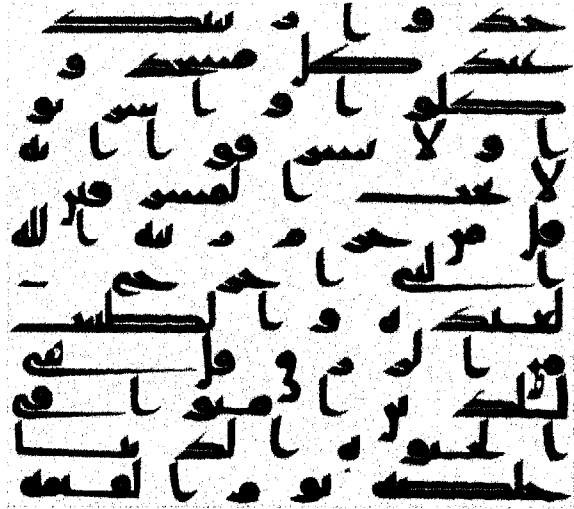 خذوا زينتكم
عند كل مسجد و
كلوا واشربو
ا ولا تسرفوا انه
لا يحب المسرفين
قل من حرم زينة الله
التي اخرج
لعباده والطيبت
من الرزق قل هي
للذين امنوا في
الحيوة الدنيا
خالصة يوم القيمة